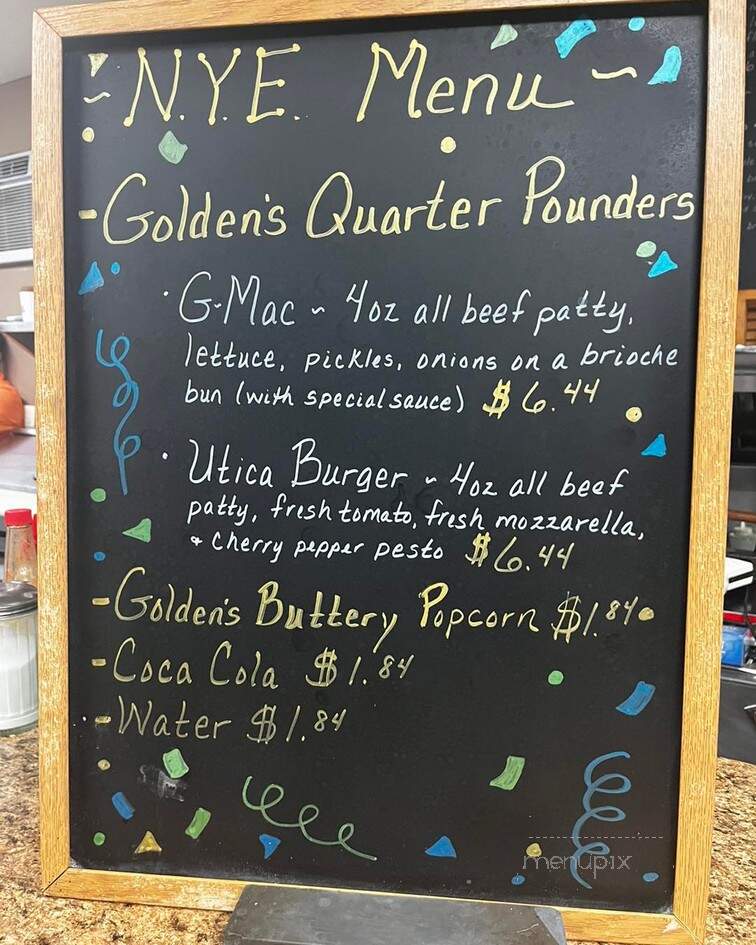 ~ N.Y.E. Menu ~
- Golden's Quarter Pounders
· G-Mac ~ 4oz all beef patty,
lettuce, pickles, onions on a brioche
bun (with special sauce) $6.44
· Utica Burger ~ 4oz all beef
patty, fresh tomato, fresh mozzarella,
+ cherry pepper pesto $6.44
- Golden's Buttery Popcorn $1.84
- Coca Cola $1.84
- Water $1.84
menupix